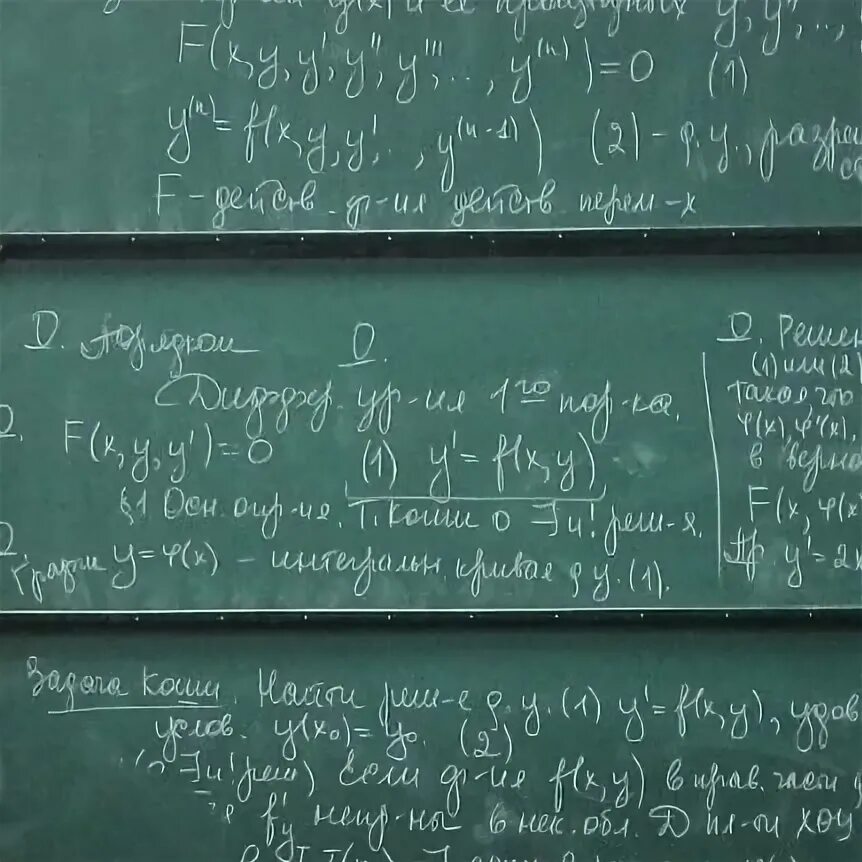 y(x) и её производных y', y'', ...,
F(x, y, y', y'', y''', .., y⁽ⁿ⁾) = 0 (1)
y⁽ⁿ⁾ = f(x, y, y', .., y⁽ⁿ⁻¹⁾) (2) – д.у., разре
F – действ. ф-ия действ. перем-х
D. Порядком
O.
Дифф. ур-ия 1го пор-ка.
F(x, y, y') = 0 (1) y' = f(x, y)
§1 Осн. опр-ия. Т. Коши о ∃ и ! реш-я.
График y = φ(x) – интегральн. кривая д.у. (1).
O. Решен
(1) или (2
такая что
φ(x), φ'(x),
в верно
F(x, φ(x
Пр. y' = 2x
Задача Коши. Найти реш-е д.у. (1) y' = f(x, y), удов
услов. y(x₀) = y₀. (2)
∃ и ! реш) Если ф-ия f(x, y) в прав. части
f'y непр-ны в нек. обл. D пл-ти XOY